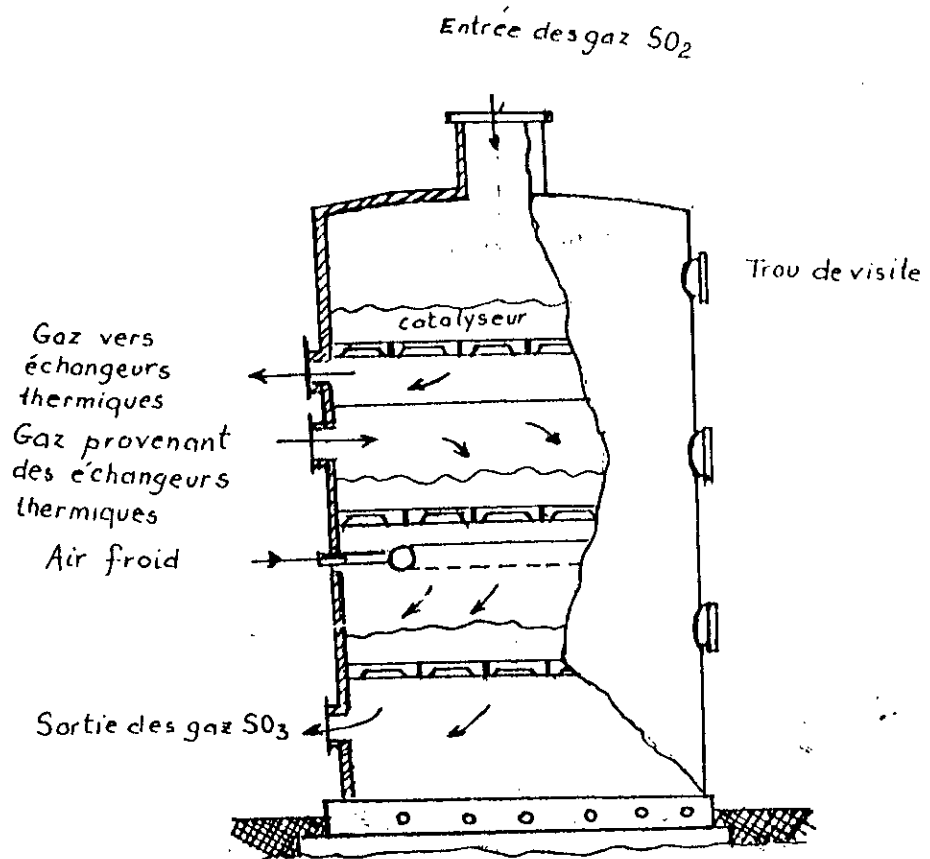 Entrée des gaz SO2
Trou de visite
catalyseur
Gaz vers
échangeurs
thermiques
Gaz provenant
des échangeurs
thermiques
Air froid
Sortie des gaz SO3